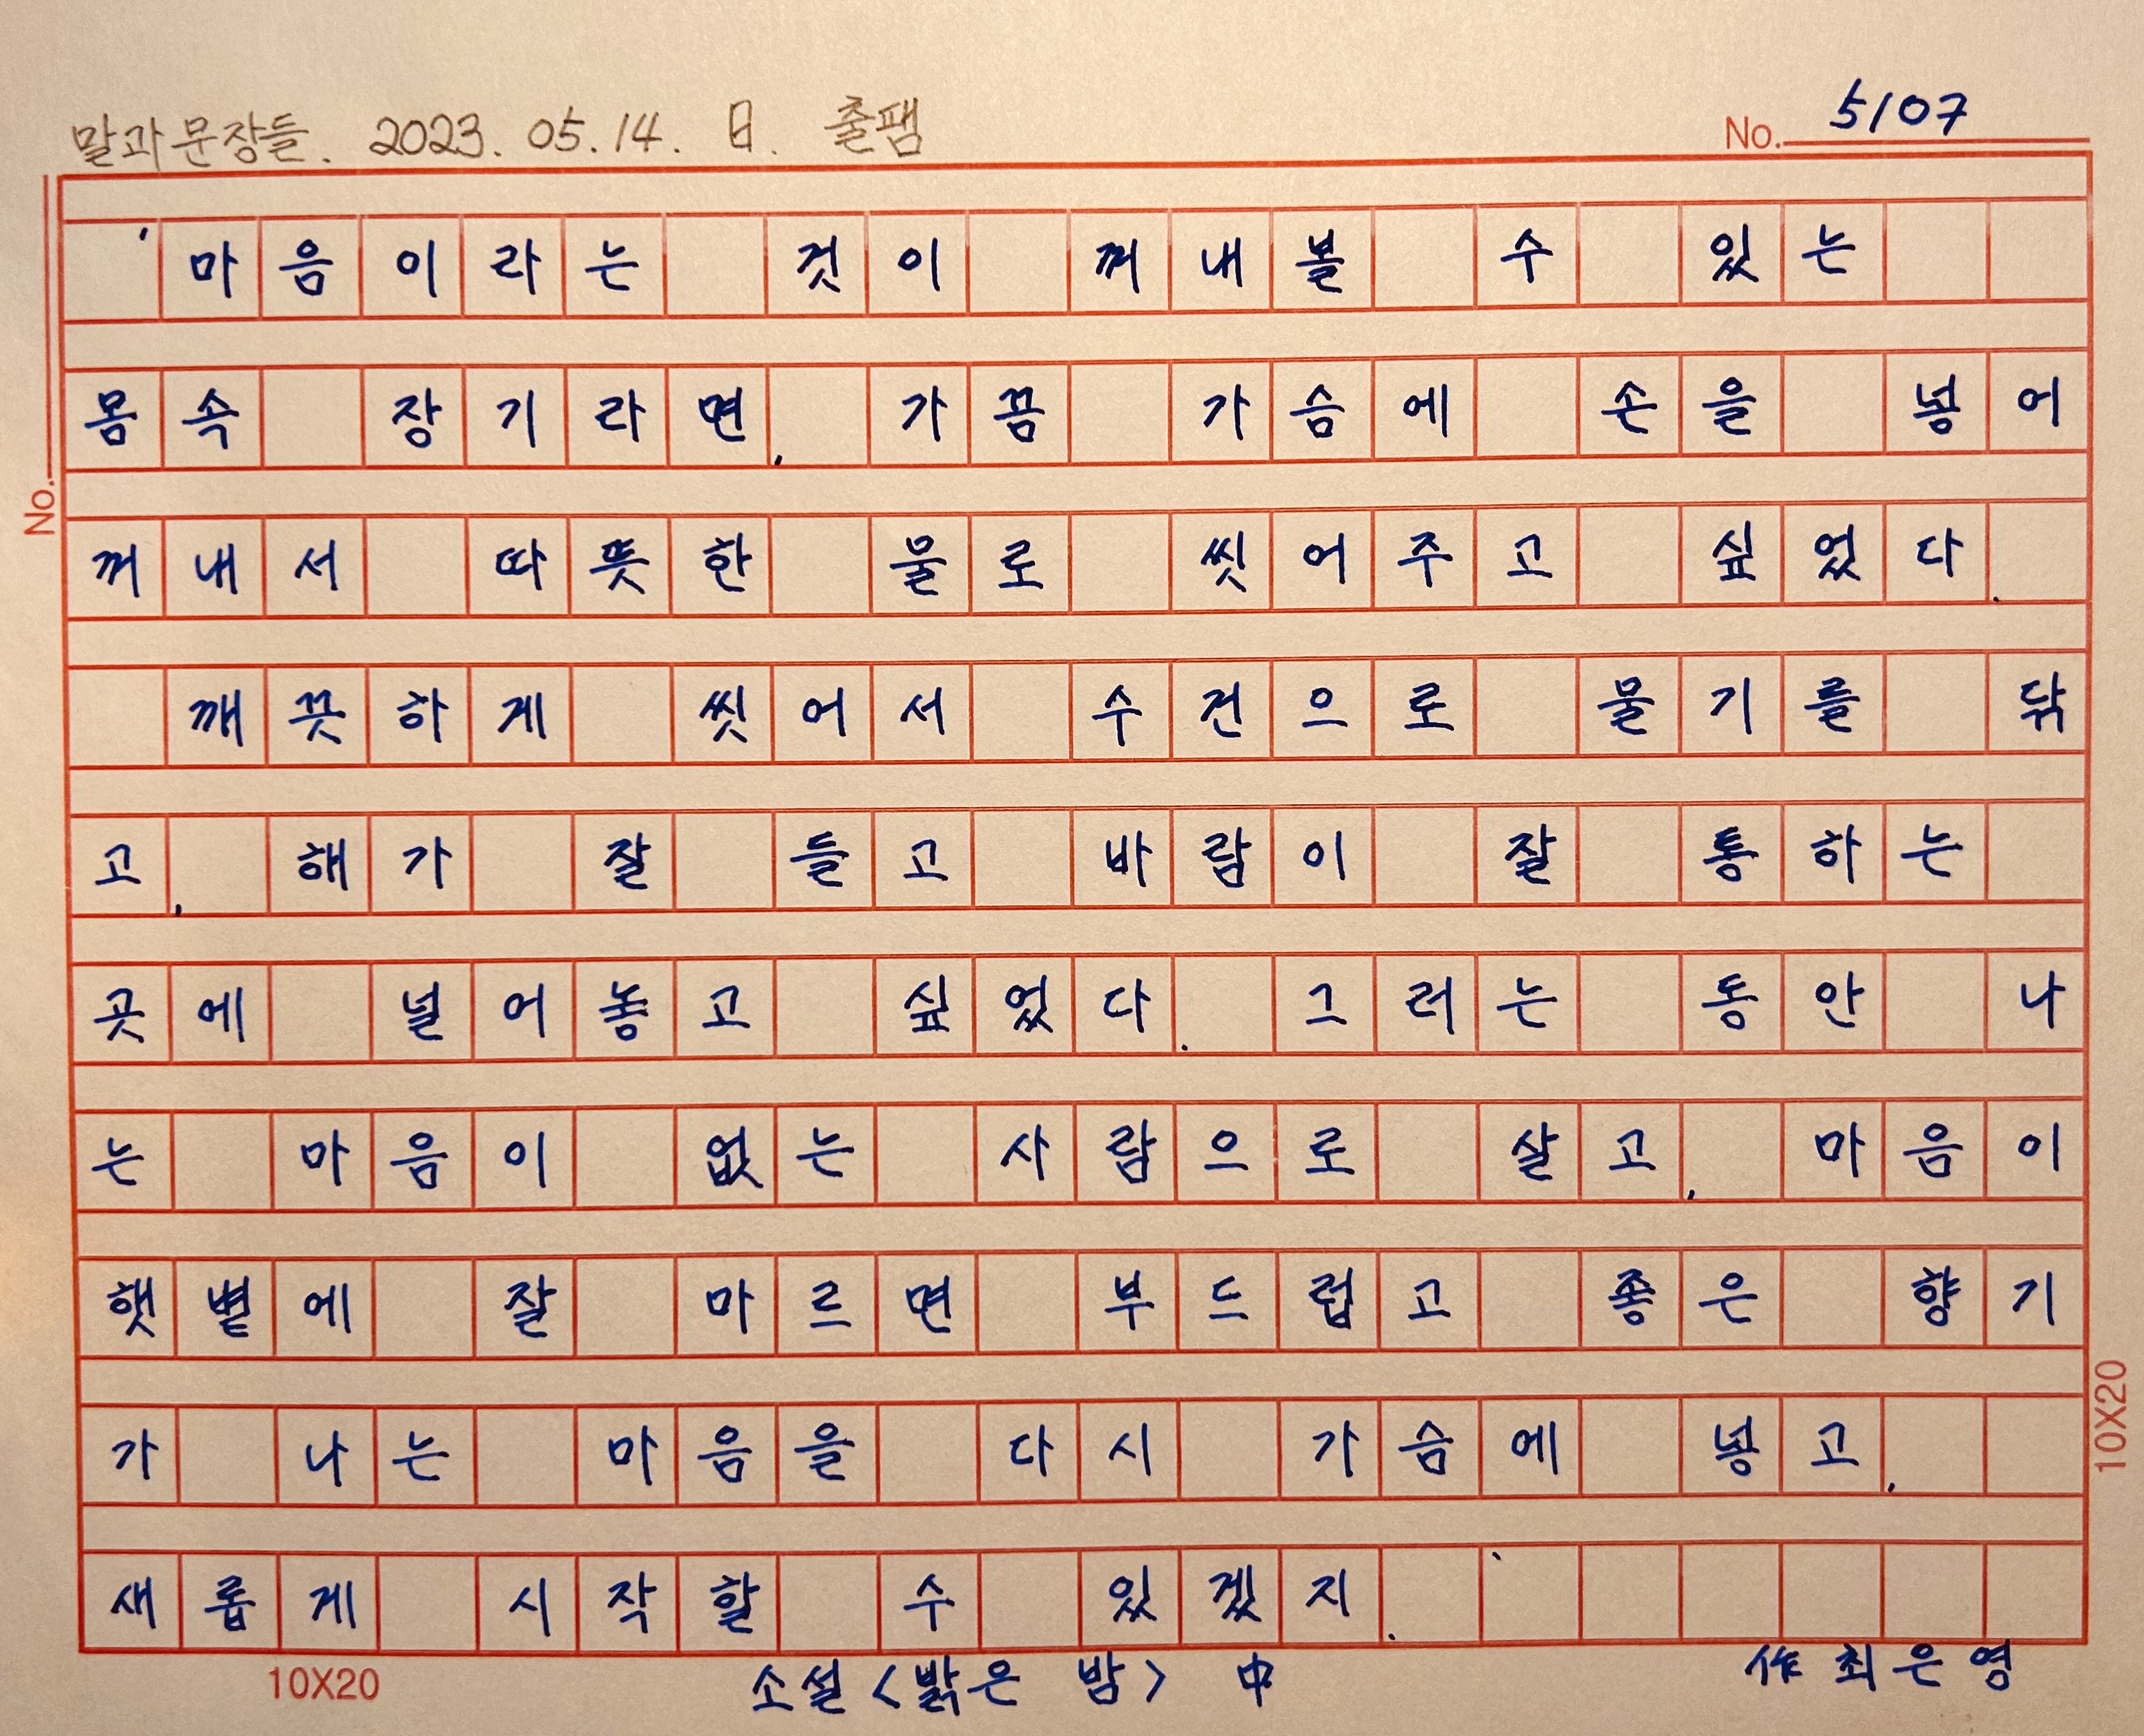 말과 문장들. 2023. 05. 14. 日. 출팸
No. 5107
'마음이라는 것이 꺼내볼 수 있는
몸속 장기라면, 가끔 가슴에 손을 넣어
꺼내서 따뜻한 물로 씻어주고 싶었다.
깨끗하게 씻어서 수건으로 물기를 닦
고, 해가 잘 들고 바람이 잘 통하는
곳에 널어놓고 싶었다. 그러는 동안 나
는 마음이 없는 사람으로 살고, 마음이
햇볕에 잘 마르면 부드럽고 좋은 향기
가 나는 마음을 다시 가슴에 넣고,
새롭게 시작할 수 있겠지.'
No.
10X20
10X20
소설 <밝은 밤> 中
作 최은영